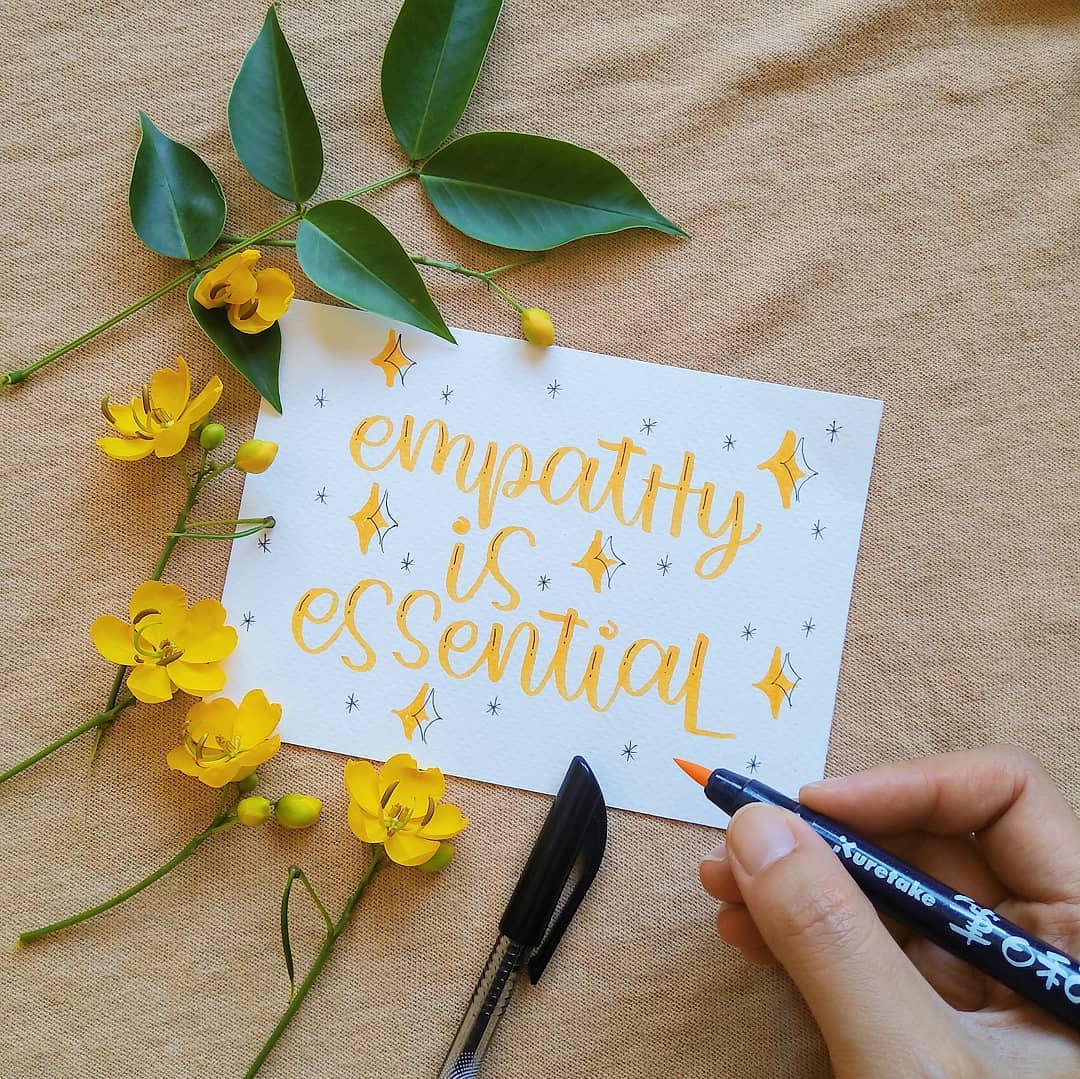 empatHy
is
essential
Kuretake